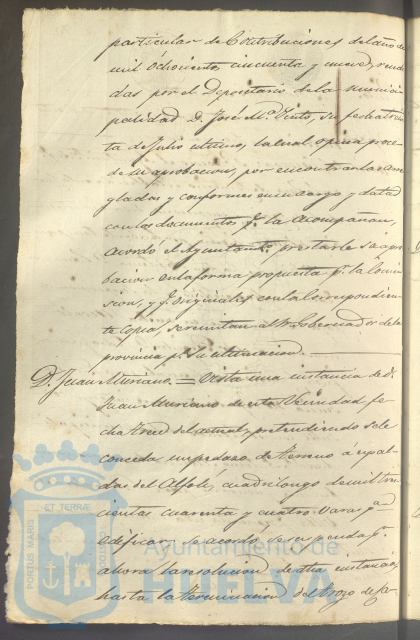 particular de Contribuciones del año de
mil ochocientos cincuenta y nueve, rendi-
das por el Depositario de la munici-
palidad D. José Mª Pinto, su fecha trein-
ta de Julio ultimo, la cual opina proce-
de su aprobacion, por encontrarlas arre-
gladas y conformes en su cargo y data
con los documentos q. la acompañan,
acordó el Ayuntamto. prestarle su apro-
bacion en la forma propuesta p. la Comi-
sion, y q. originales con la correspondien-
te copia, se remitan al Sr. Gobernador de la
provincia pª su ultimacion.
D. Juan Muriano. = Vista una instancia de D.
Juan Muriano de esta Vecindad, fe-
cha trece del actual, pretendiendo se le
conceda un pedazo de terreno á espal-
das del Alfolí, cuadrilongo de mil tres-
cientas cuarenta y cuatro varas pª
edificar, se acordó se suspenda p.
ahora la resolucion de dha instancia,
hasta la terminacion del trozo de Ca-
PORTUS MARIS
ET TERRÆ
CUSTODIA
Ayuntamiento de
HUELVA